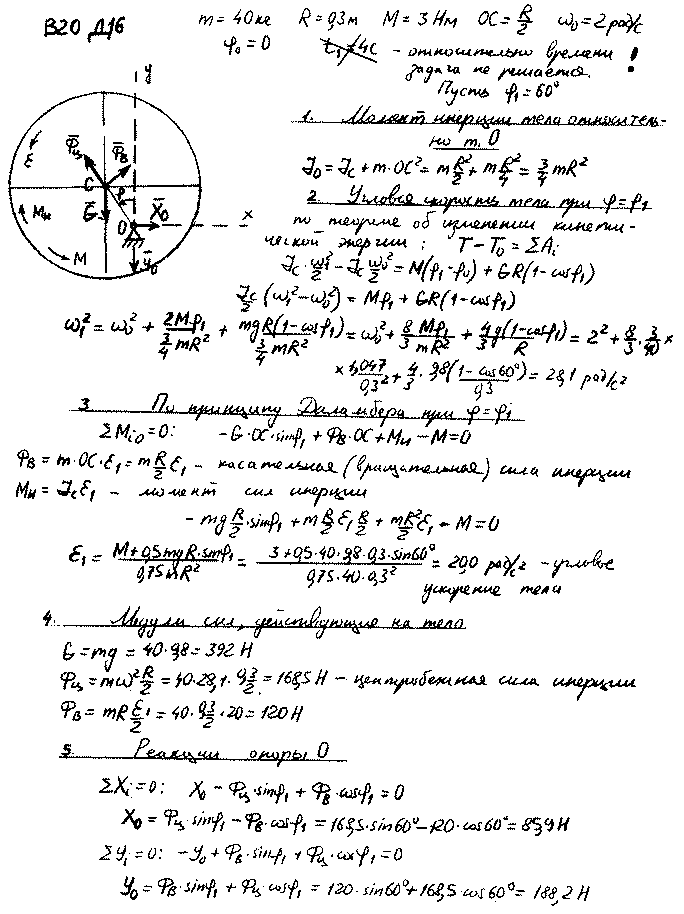 В20 Д16
m = 40 кг R = 0,3 м M = 3 Нм OC = R/2 ω₀ = 2 рад/с
φ₀ = 0 t₁ = 4c – относительно времени
задача не решается !
Пусть φ₁ = 60°
1. Момент инерции тела относитель-
но т. O
J₀ = Jc + m·OC² = mR²/2 + mR²/4 = 3/4 mR²
2. Угловая скорость тела при φ = φ₁
по теореме об изменении кинети-
ческой энергии : T – T₀ = ΣAᵢ
Jc·ω₁²/2 – Jc ω₀²/2 = M(φ₁ – φ₀) + GR(1 – cosφ₁)
Jc/2 (ω₁² – ω₀²) = Mφ₁ + GR(1 – cosφ₁)
ω₁² = ω₀² + 2Mφ₁/(3/4 mR²) + mgR(1 – cosφ₁)/(3/4 mR²) = ω₀² + 8/3 Mφ₁/mR² + 4/3 g(1 – cosφ₁)/R = 2² + 8/3 · 3/40 ×
× 1,047/0,3² + 4/3 · 9,8(1 – cos60°)/0,3 = 28,1 рад/с²
3 По принципу Даламбера при φ = φ₁
ΣMᵢ₀ = 0: –G·OC·sinφ₁ + Φв·OC + Mи – M = 0
Φв = m·OC·ε₁ = m R/2 ε₁ – касательная (вращательная) сила инерции
Mи = Jcε₁ – момент сил инерции
– mg R/2·sinφ₁ + m R/2 ε₁ R/2 + mR²/2 ε₁ – M = 0
ε₁ = (M + 0,5mgR·sinφ₁)/(0,75mR²) = (3 + 0,5·40·9,8·0,3·sin60°)/(0,75·40·0,3²) = 20,0 рад/с² – угловое
ускорение тела
4. Модули сил, действующие на тело
G = mg = 40·9,8 = 392 Н
Φц = mω² R/2 = 40·28,1·0,3/2 = 168,5 Н – центробежная сила инерции
Φв = mR ε₁/2 = 40·0,3/2·20 = 120 Н
5 Реакции опоры O
ΣXᵢ = 0: X₀ – Φц·sinφ₁ + Φв·cosφ₁ = 0
X₀ = Φц·sinφ₁ – Φв·cosφ₁ = 168,5·sin60° – 120·cos60° = 85,9 Н
ΣYᵢ = 0: –Y₀ + Φв·sinφ₁ + Φц·cosφ₁ = 0
Y₀ = Φв·sinφ₁ + Φц·cosφ₁ = 120·sin60° + 168,5 cos60° = 188,2 Н
y
ε
Φц
Φв
C
φ
G
O
X₀
x
Mи
M
Y₀